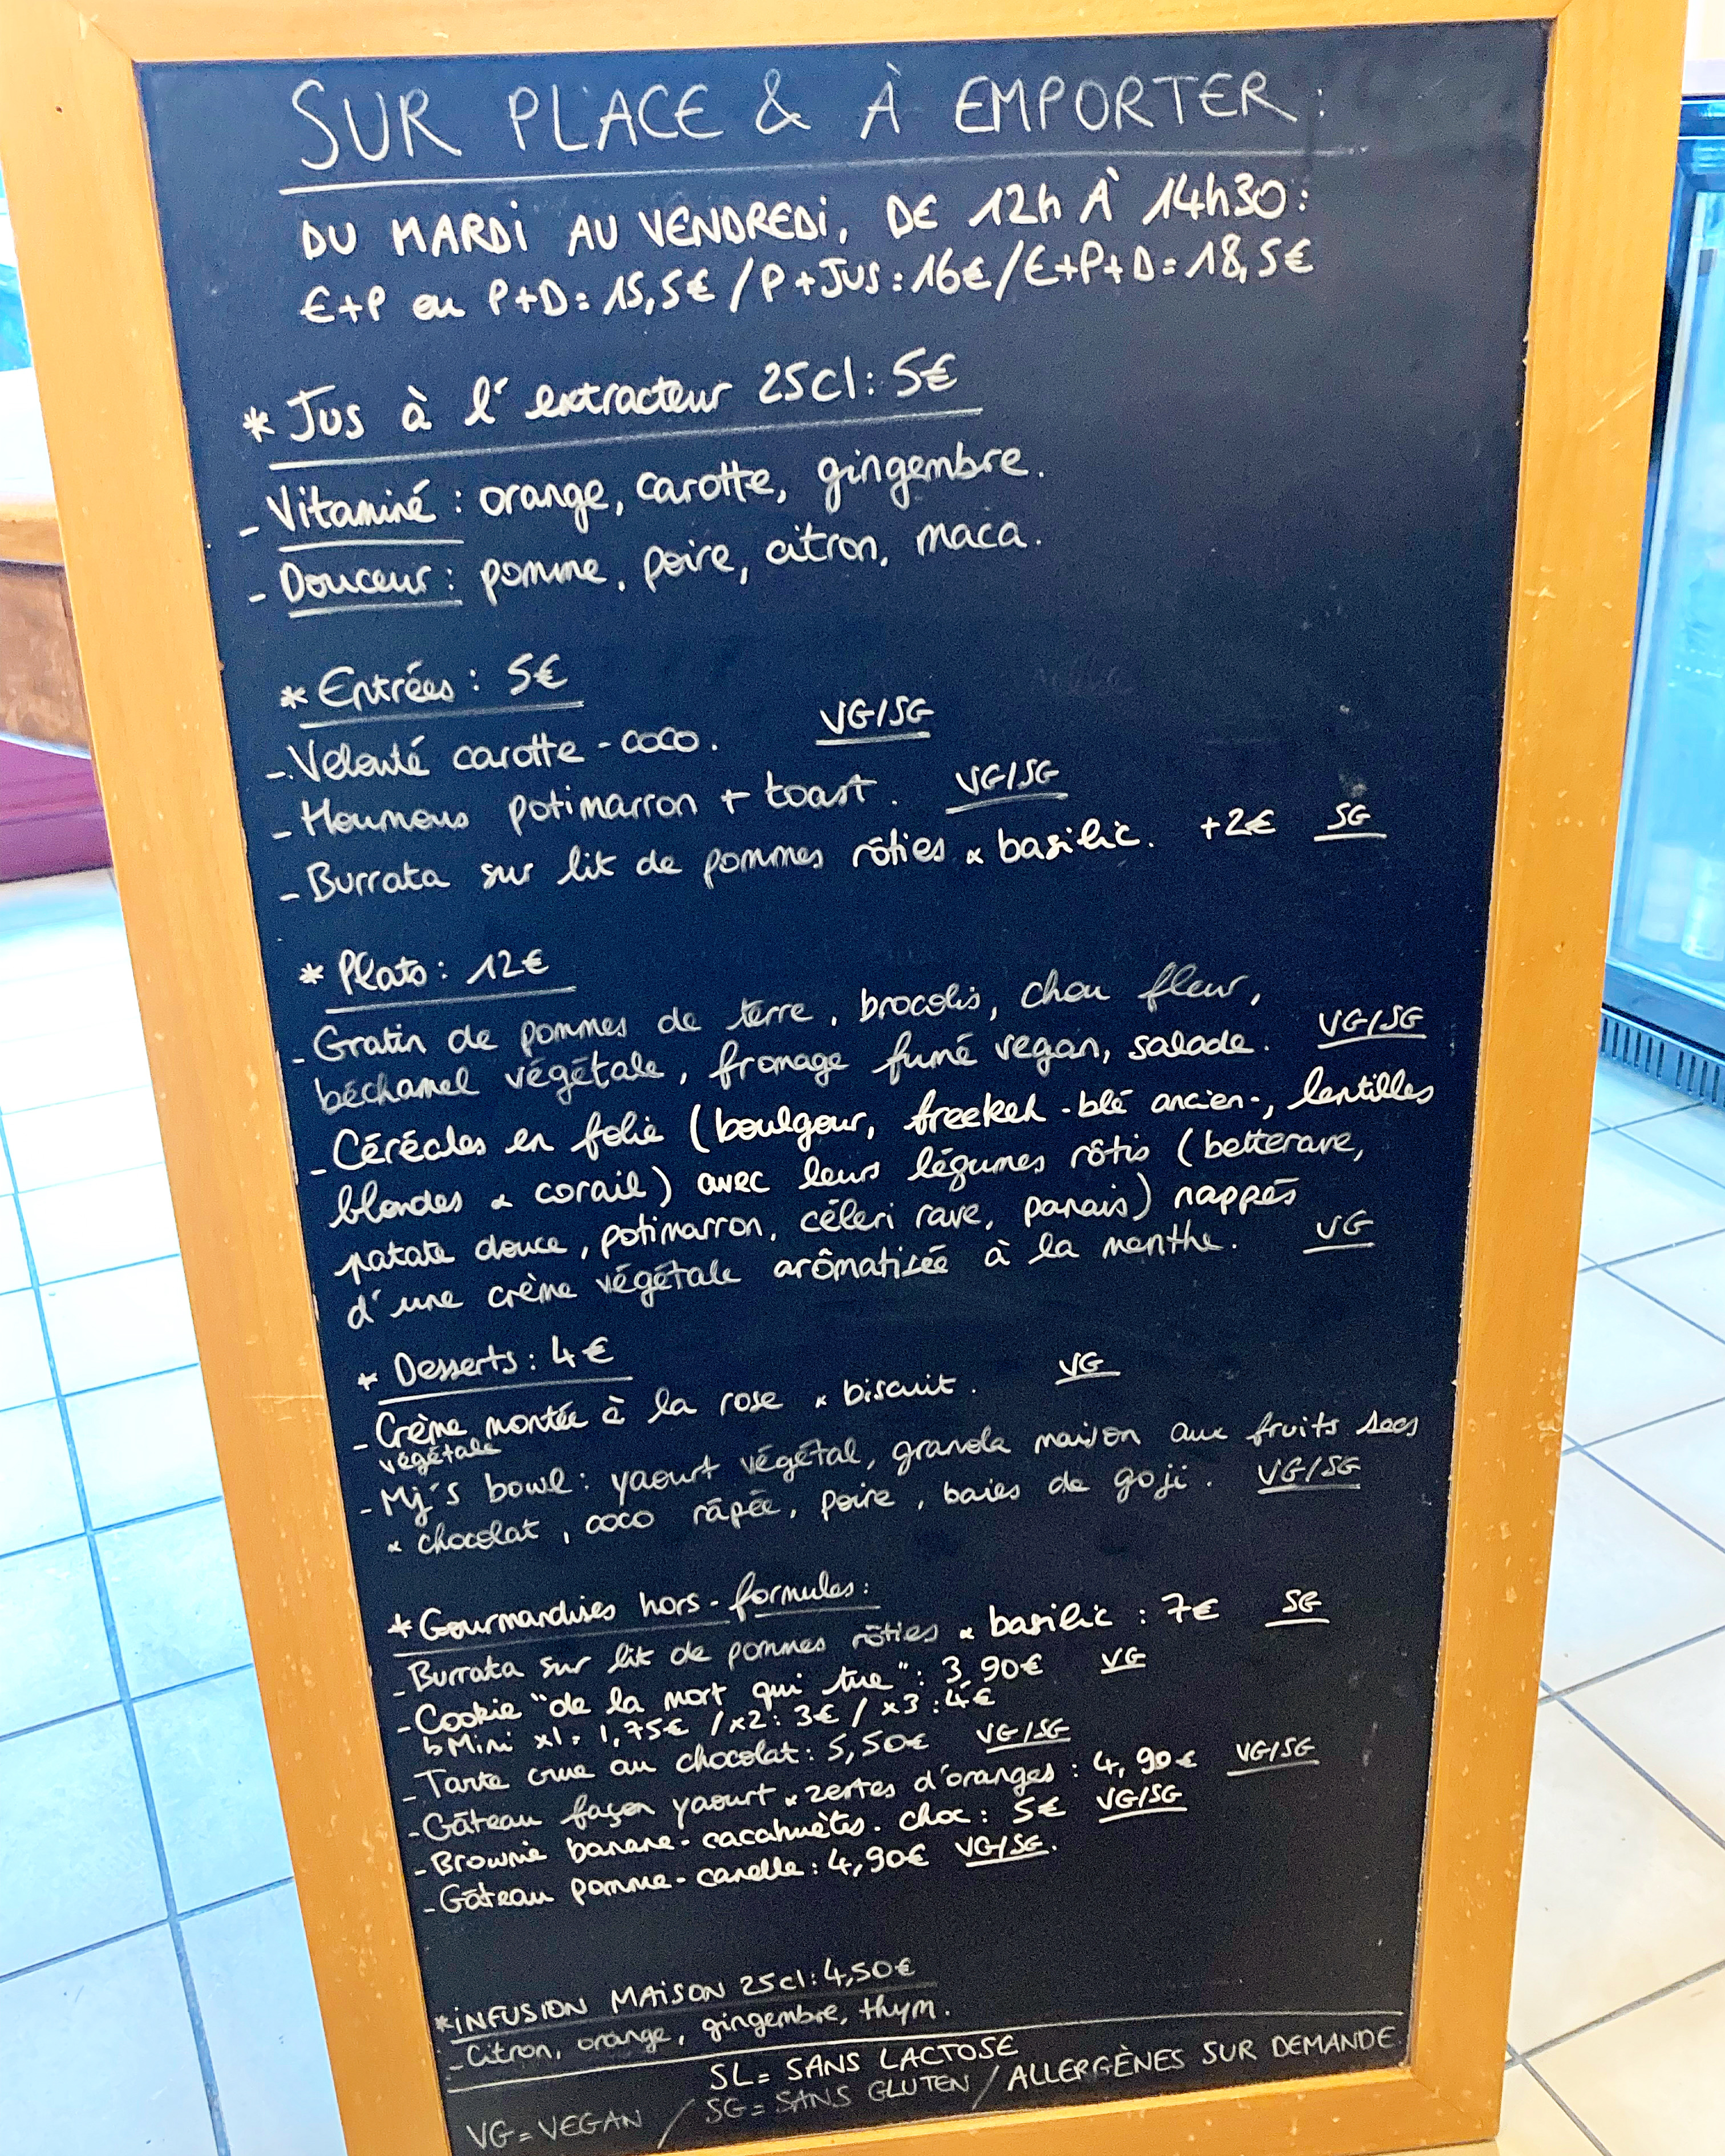 SUR PLACE & À EMPORTER :
DU MARDI AU VENDREDI, DE 12h À 14h30 :
E+P ou P+D = 15,5€ / P+JUS : 16€ / E+P+D = 18,5€
* Jus à l'extracteur 25cl : 5€
- Vitaminé : orange, carotte, gingembre.
- Douceur : pomme, poire, citron, maca.
* Entrées : 5€
- Velouté carotte - coco. VG/SG
- Houmous potimarron + toast. VG/SG
- Burrata sur lit de pommes rôties & basilic. +2€ SG
* Plats : 12€
- Gratin de pommes de terre, brocolis, chou fleur,
béchamel végétale, fromage fumé vegan, salade. VG/SG
- Céréales en folie (boulgour, freekeh - blé ancien -, lentilles
blondes & corail) avec leurs légumes rôtis (betterave,
patate douce, potimarron, céleri rave, panais) nappés
d'une crème végétale arômatisée à la menthe. VG
* Desserts : 4€
- Crème montée à la rose & biscuit. VG
végétale
- Mj's bowl : yaourt végétal, granola maison aux fruits secs
& chocolat, coco râpée, poire, baies de goji. VG/SG
* Gourmandises hors-formules :
- Burrata sur lit de pommes rôties & basilic : 7€ SG
- Cookie "de la mort qui tue" : 3,90€ VG
↳ Mini x1 = 1,75€ / x2 : 3€ / x3 : 4€
- Tarte crue au chocolat : 5,50€ VG/SG
- Gâteau façon yaourt & zestes d'oranges : 4,90€ VG/SG
- Brownie banane - cacahuètes - choc : 5€ VG/SG
- Gâteau pomme - canelle : 4,90€ VG/SG.
* INFUSION MAISON 25cl : 4,50€
- Citron, orange, gingembre, thym.
SL = SANS LACTOSE
VG = VEGAN / SG = SANS GLUTEN / ALLERGÈNES SUR DEMANDE.